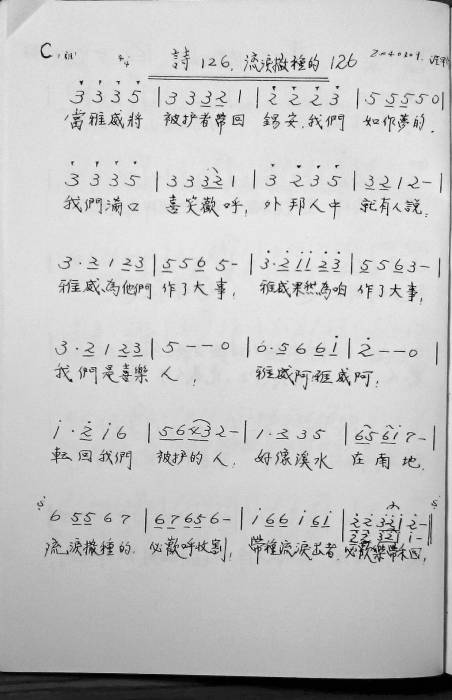 C 4/4 詩126.流淚撒種的126
3 3 3 5 | 3 3 3 2 1 | 2 2 2 3 | 5 5 5 5 0 |
當雅威將 被擄者帶回 錫安.我們 如作夢的.
3 3 3 5 | 3 3 3 2 1 | 3 2 3 5 | 3 2 1 2 - |
我們滿口 喜笑歡呼, 外邦人中 就有人說:
3 · 2 1 2 3 | 5 5 6 5 - | 3 · 2 1 1 2 3 | 5 5 6 3 - |
雅威為他們 作了大事, 雅威果然為咱 作了大事,
3 · 2 1 2 3 | 5 - - 0 | 0 · 5 6 6 i | 2 - - 0 |
我們是喜樂 人, 雅威阿.雅威阿,
i · 2 i 6 | 5 6 4 3 2 - | 1 · 2 3 5 | 6 5 6 i 7 - |
転回我們 被擄的人, 好像溪水 在南地.
6 5 5 6 7 | 6 7 6 5 6 - | i 6 6 i 6 i | 2 2 3 2 i 2 - ||
流淚撒種的. 必歡呼收割, 帶種流淚出者.必歡樂帶禾回,